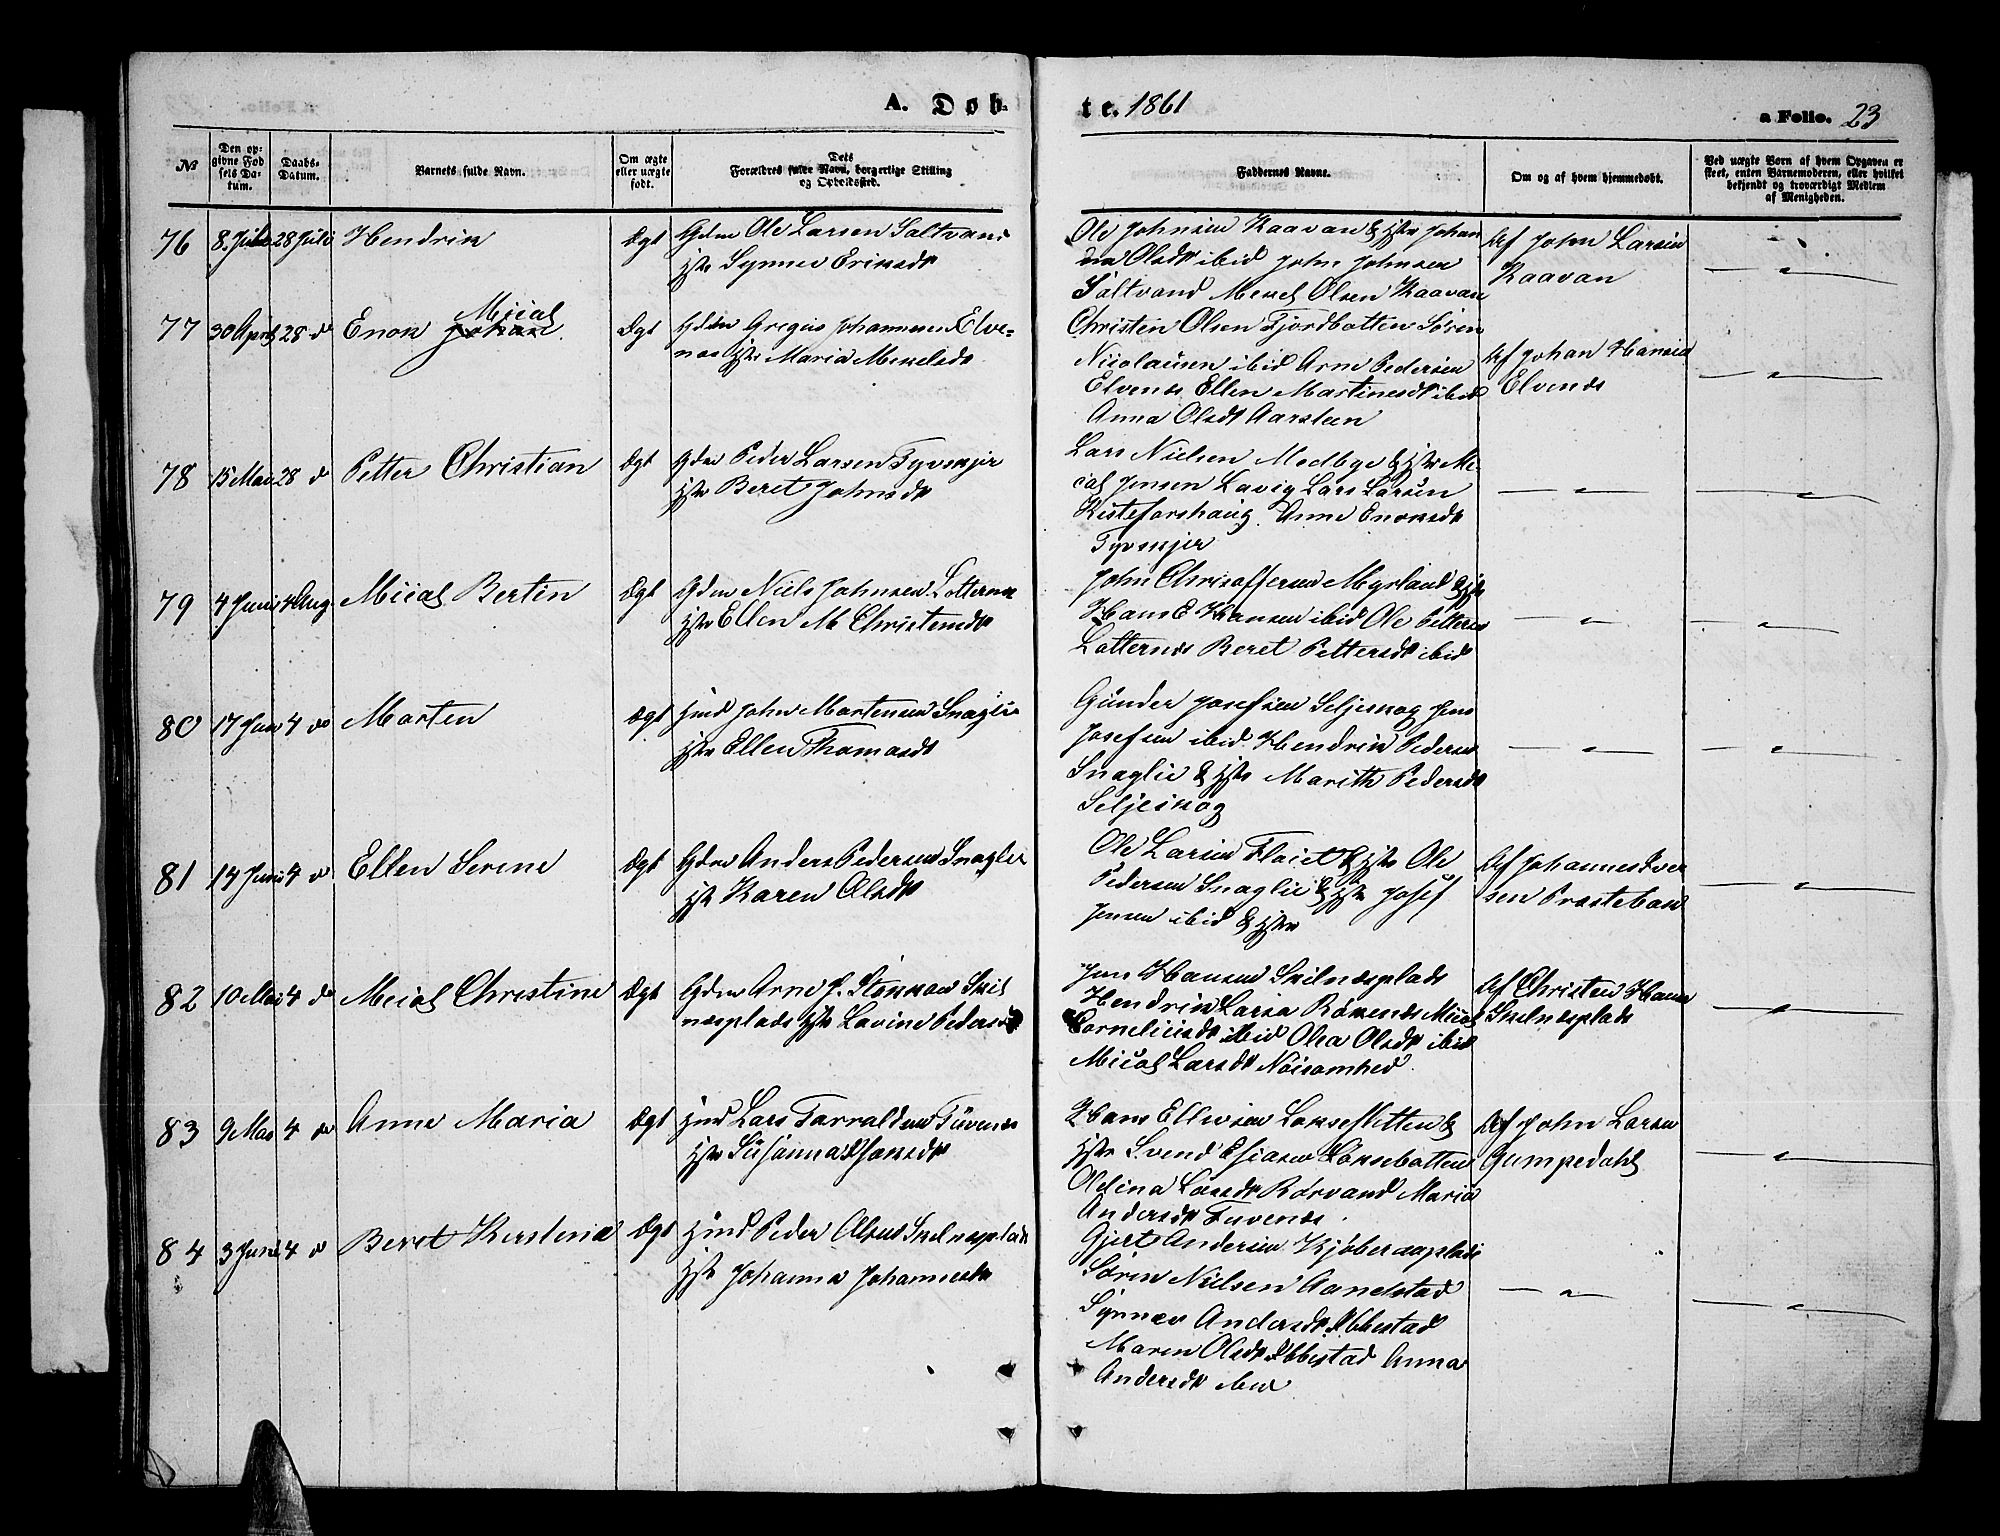 A. Døb-
te. 1861
a Folio. 23
№
Den op-
givne Fød
sels Da-
tum.
Daabs-
Datum.
Barnets fulde Navn.
Om ægte
eller uægte
født.
Dets
Forældres fulde Navn, borgerlige Stilling
og Opholdssted.
Faddernes Navne.
Om og af hvem hjemmedøbt.
Ved uægte Børn af hvem Opgaven er
skeet, enten Barnemoderen, eller hvilket
bekjendt og troværdigt Medlem
af Menigheden.
76 8 Juli 28 Juli Hendrik Ægt Gdm Ole Larsen Saltvand
Hst Synnev Eriksdt
Ole Johnsen Kaavan & Hst Johan
na Olsdt ibid John Johnsen
Saltvand Mekel Olsen Kaavan
Af John Larsen
Kaavan
77 30 April 28 do Enok Johan Micал Ægt Gdm Gregus Johannesen Elve-
nes Hst Maria Mekelsdt
Christen Olsen Fjordbotten Søren
Nicolausen ibid Arne Pedersen
Elvenes Ellen Martinesdt ibid
Anna Olsdt Aarsteen
Af Johan Hansen
Elvenes
78 15 Mai 28 do Petter Christian Ægt Gdm Peder Larsen Tyvskjær
Hst Beret Johnsdt
Lars Nielsen Medbye & Hst Mi-
cal Jensen Lavig Lars Larsen
Kistefoshaug Anne Enoksdt
Tyvskjer
79 4 Juni 4 Aug Mical Bertin Ægt Gdm Niels Johnsen Lotternes
Hst Ellen M. Christensdt
John Christoffersen Myrland & Hst
Hans E Hansen ibid Ole Pettersen
Lotternes Beret Pettersdt ibid
80 17 Jun 4 do Morten Ægt Jnd John Mortensen Snaglie
Hst Ellen Thomasdt
Gunder Josefsen Seljeskog Jens
Josefsen ibid Hendrik Pedersen
Snaglie & Hst Marith Pedersdt
Seljeskog
81 14 Juni 4 do Ellen Serene Ægt Gdm Anders Pedersen Snaglie
Hst Karen Olsdt
Ole Larsen Flaiet & Hst Ole
Pedersen Snaglie & Hst Josef
Jensen ibid & Hst
Af Johannes Iver
sen Prestebak
82 10 Mai 4 do Mical Christine Ægt Gdm Arne P. Skil
nesplads Hst Lavine Pedersdt
Jens Hansen Skilnesplads
Hendrik Larsen Røkenes Mical
Corneliusdt ibid Olea Olsdt ibid
Mical Larsdt Nøisomhed
Af Christen Hansen
Skelnesplads
83 9 Mai 4 do Anne Maria Ægt Jnd Lars Tarraldsen Tuvenes
Hst Susanna Isaksdt
Hans Ellevsen &
Hst Svend Esiasen Løksebotten
Oldina Larsdt Rørvand Maria
Andersdt Tuvenes.
Af John Larsen
Gumpedahl
84 3 Juni 4 do Beret Kirstena Ægt Jnd Peder Olsen Skelnesplads
Hst Johanna Johannesdt
Gjert Andersen Kjøberaaplads
Søren Nielsen Aanestad
Synnev Andersdt Ibbestad
Maren Olsdt Ibbestad Anna
Andersdt ibid